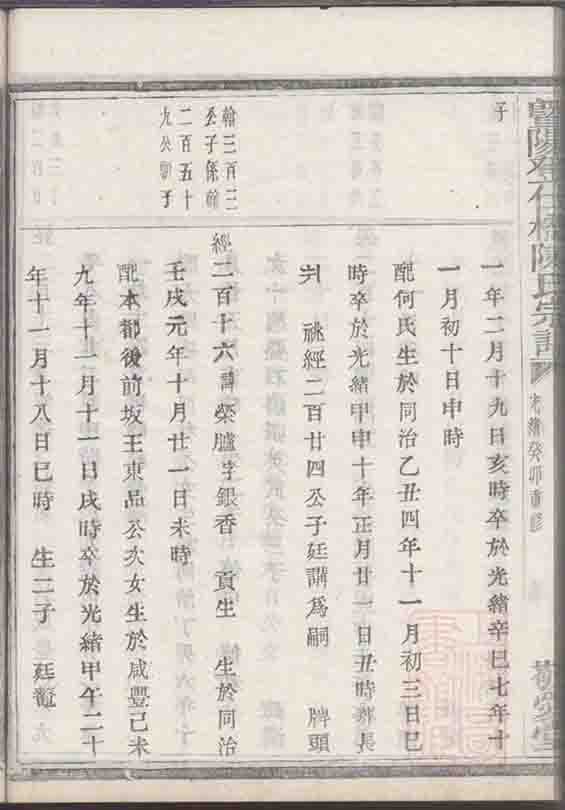 暨陽登仕橋陳氏宗譜
光緒癸卯重修
敬愛堂
子
一年二月十九日亥時卒於光緒辛巳七年十
一月初十日申時
配何氏生於同治乙丑四年十一月初三日巳
時卒於光緒甲申十年正月廿一日丑時葬長
祔經二百廿四公子廷諝爲嗣 牌頭
翰三百三
公子係翰
二百五十
九公卹子
經二百十六諱榮臚字銀香 貢生 生於同治
壬戌元年十月廿一日未時
配本都後前坂王東品公次女生於咸豐己未
九年十一月十一日戌時卒於光緒甲午二十
年十一月十八日巳時 生二子 廷